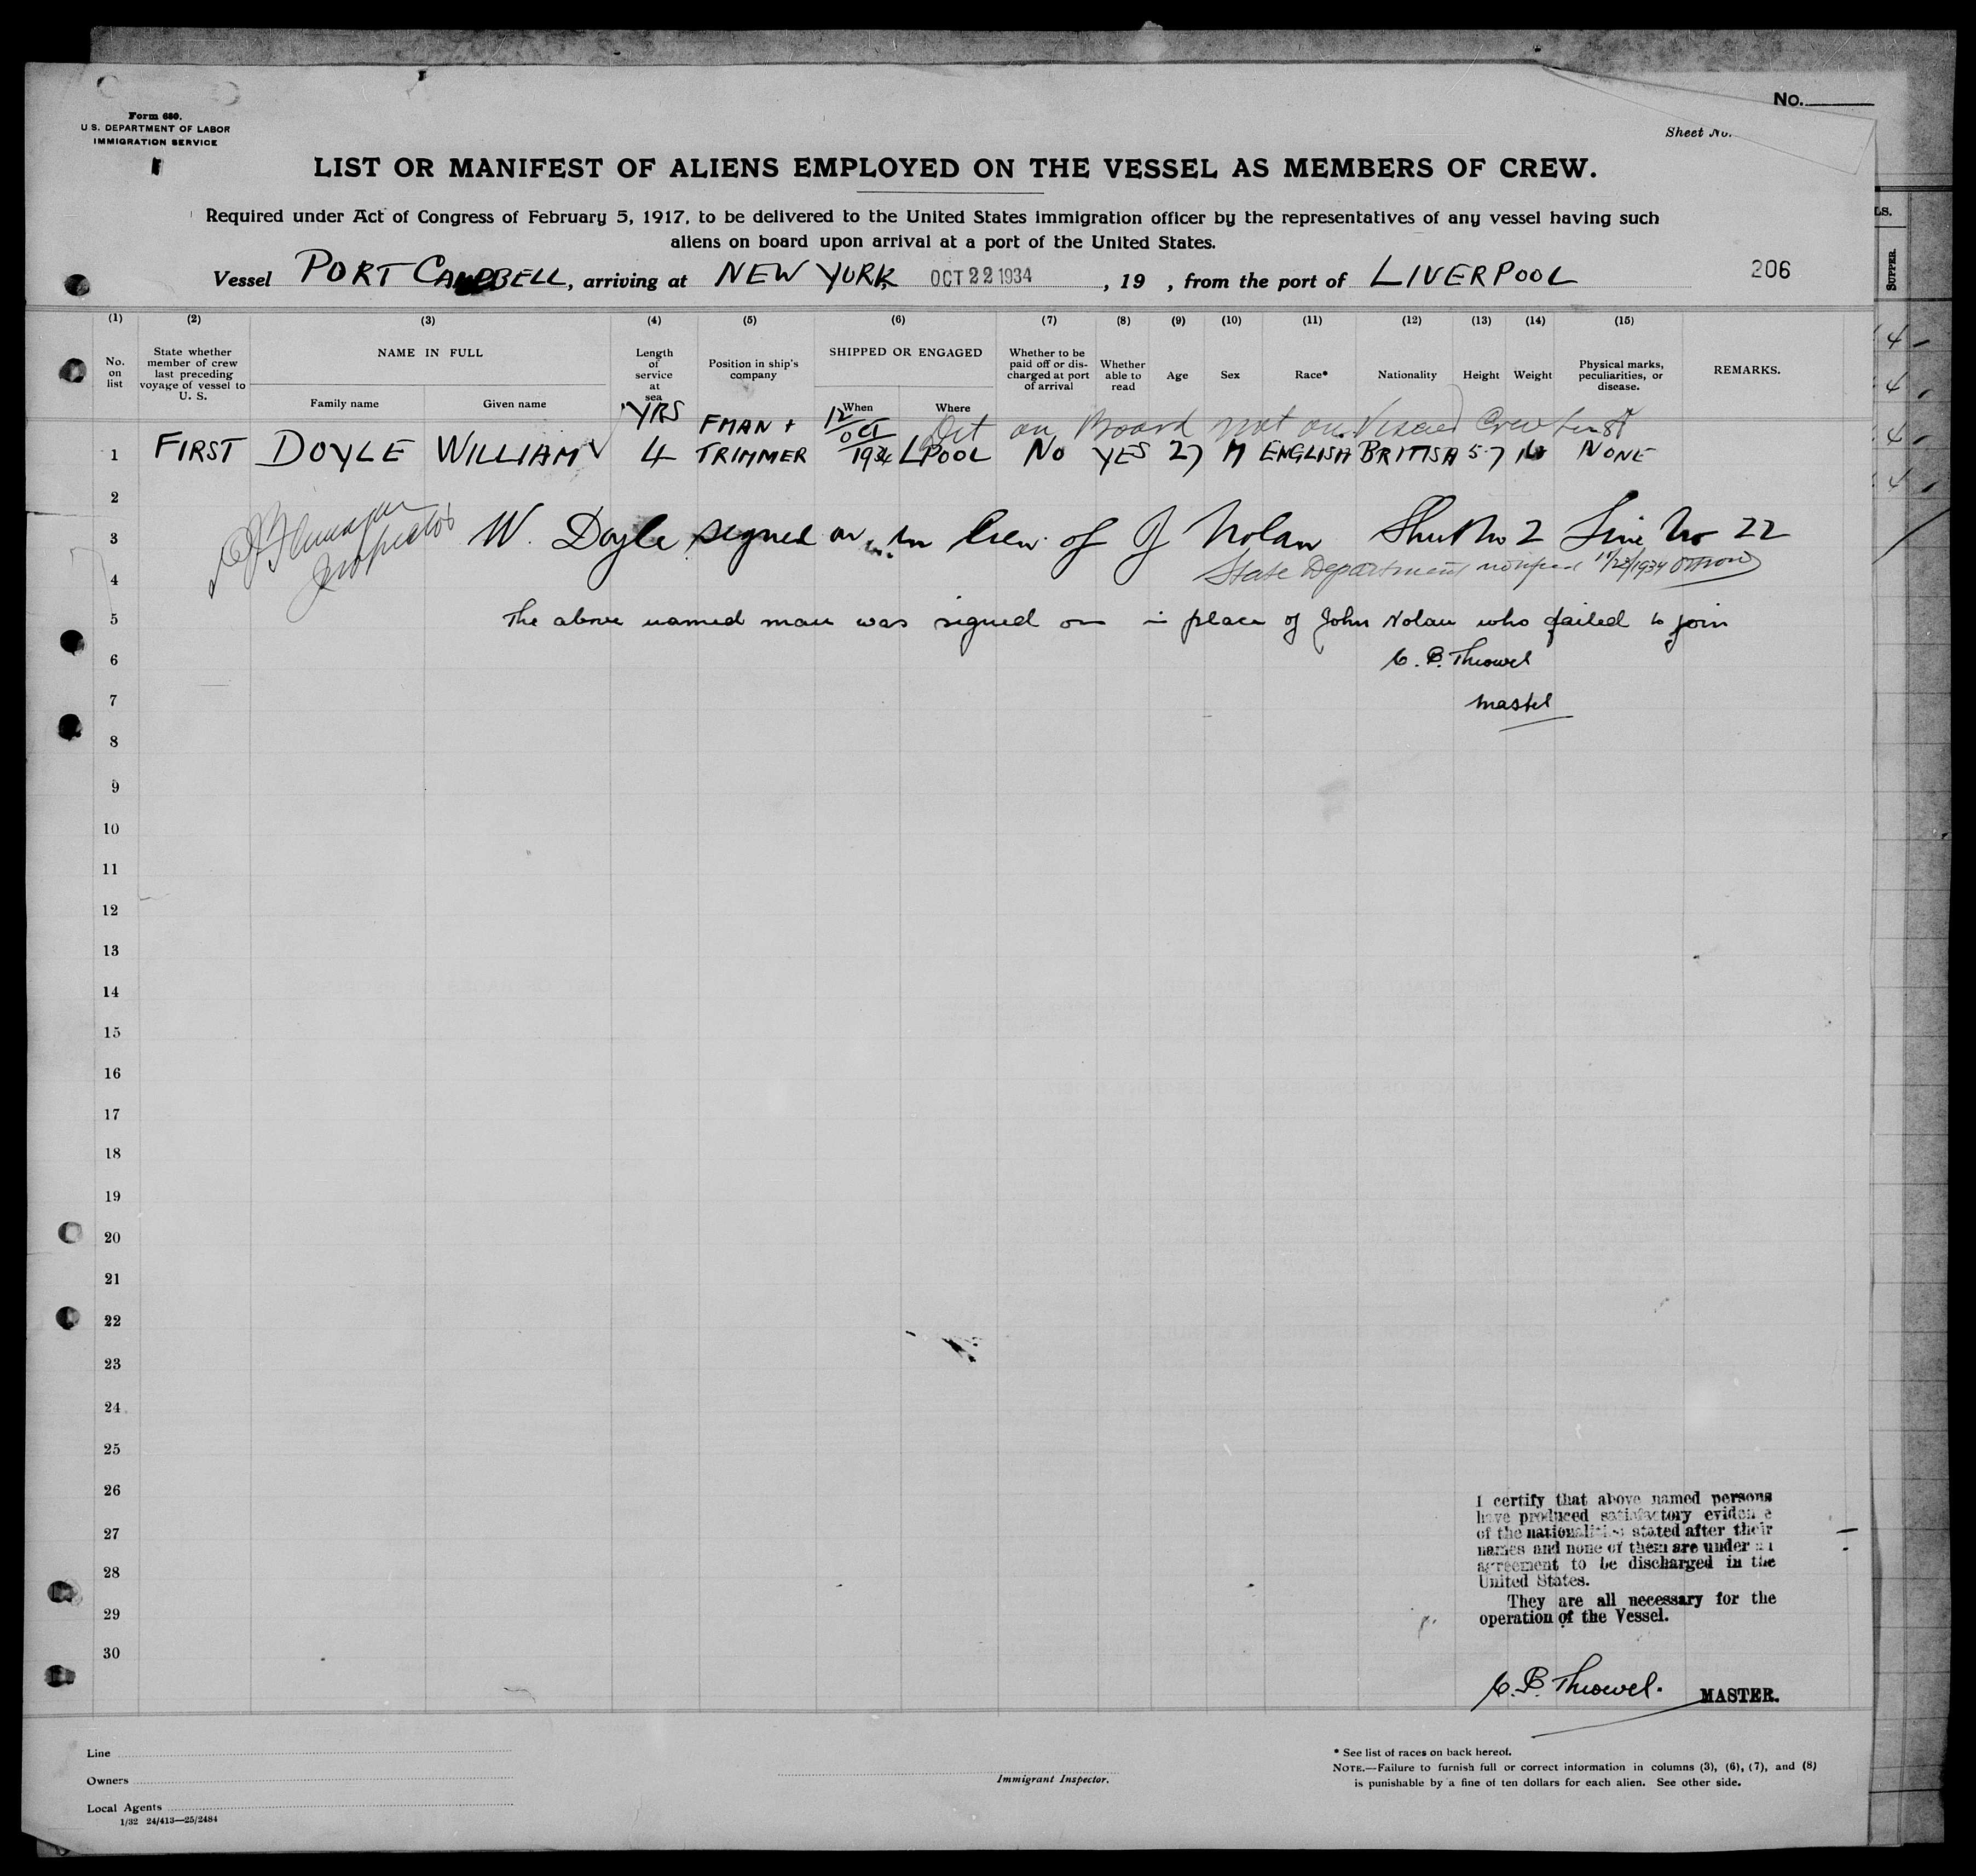 No.
Form 680.
U. S. DEPARTMENT OF LABOR
IMMIGRATION SERVICE
Sheet No.
LIST OR MANIFEST OF ALIENS EMPLOYED ON THE VESSEL AS MEMBERS OF CREW.
Required under Act of Congress of February 5, 1917, to be delivered to the United States immigration officer by the representatives of any vessel having such
aliens on board upon arrival at a port of the United States.
Vessel PORT CAMPBELL, arriving at NEW YORK OCT 22 1934, 19 , from the port of LIVERPOOL 206
LS.
SUPPER
(1) (2) (3) (4) (5) (6) (7) (8) (9) (10) (11) (12) (13) (14) (15)
No. on list
State whether member of crew last preceding voyage of vessel to U. S.
NAME IN FULL
Family name
Given name
Length of service at sea
Position in ship's company
SHIPPED OR ENGAGED
When
Where
Whether to be paid off or discharged at port of arrival
Whether able to read
Age
Sex
Race*
Nationality
Height
Weight
Physical marks, peculiarities, or disease.
REMARKS.
YRS FMAN + 12 Oct Det on Board not on Visaed Crew List
1 FIRST DOYLE WILLIAM 4 TRIMMER 1934 LPOOL NO YES 27 M ENGLISH BRITISH 5-7 NONE
2
3 W. Doyle signed on in lieu of J Nolan Sheet No 2 Line No 22
Inspector
4 State Department notified 11/23/1934
5 The above named man was signed on in place of John Nolan who failed to join
6 C. B. Throwel
7 Master
8
9
10
11
12
13
14
15
16
17
18
19
20
21
22
23
24
25
26
27
28
29
30
I certify that above named persons
have produced satisfactory evidence
of the nationalities stated after their
names and none of them are under an
agreement to be discharged in the
United States.
They are all necessary for the
operation of the Vessel.
C. B. Throwel. MASTER.
Line
Owners
Local Agents
1/32 24/413—25/2484
Immigrant Inspector.
* See list of races on back hereof.
NOTE.—Failure to furnish full or correct information in columns (3), (6), (7), and (8)
is punishable by a fine of ten dollars for each alien. See other side.